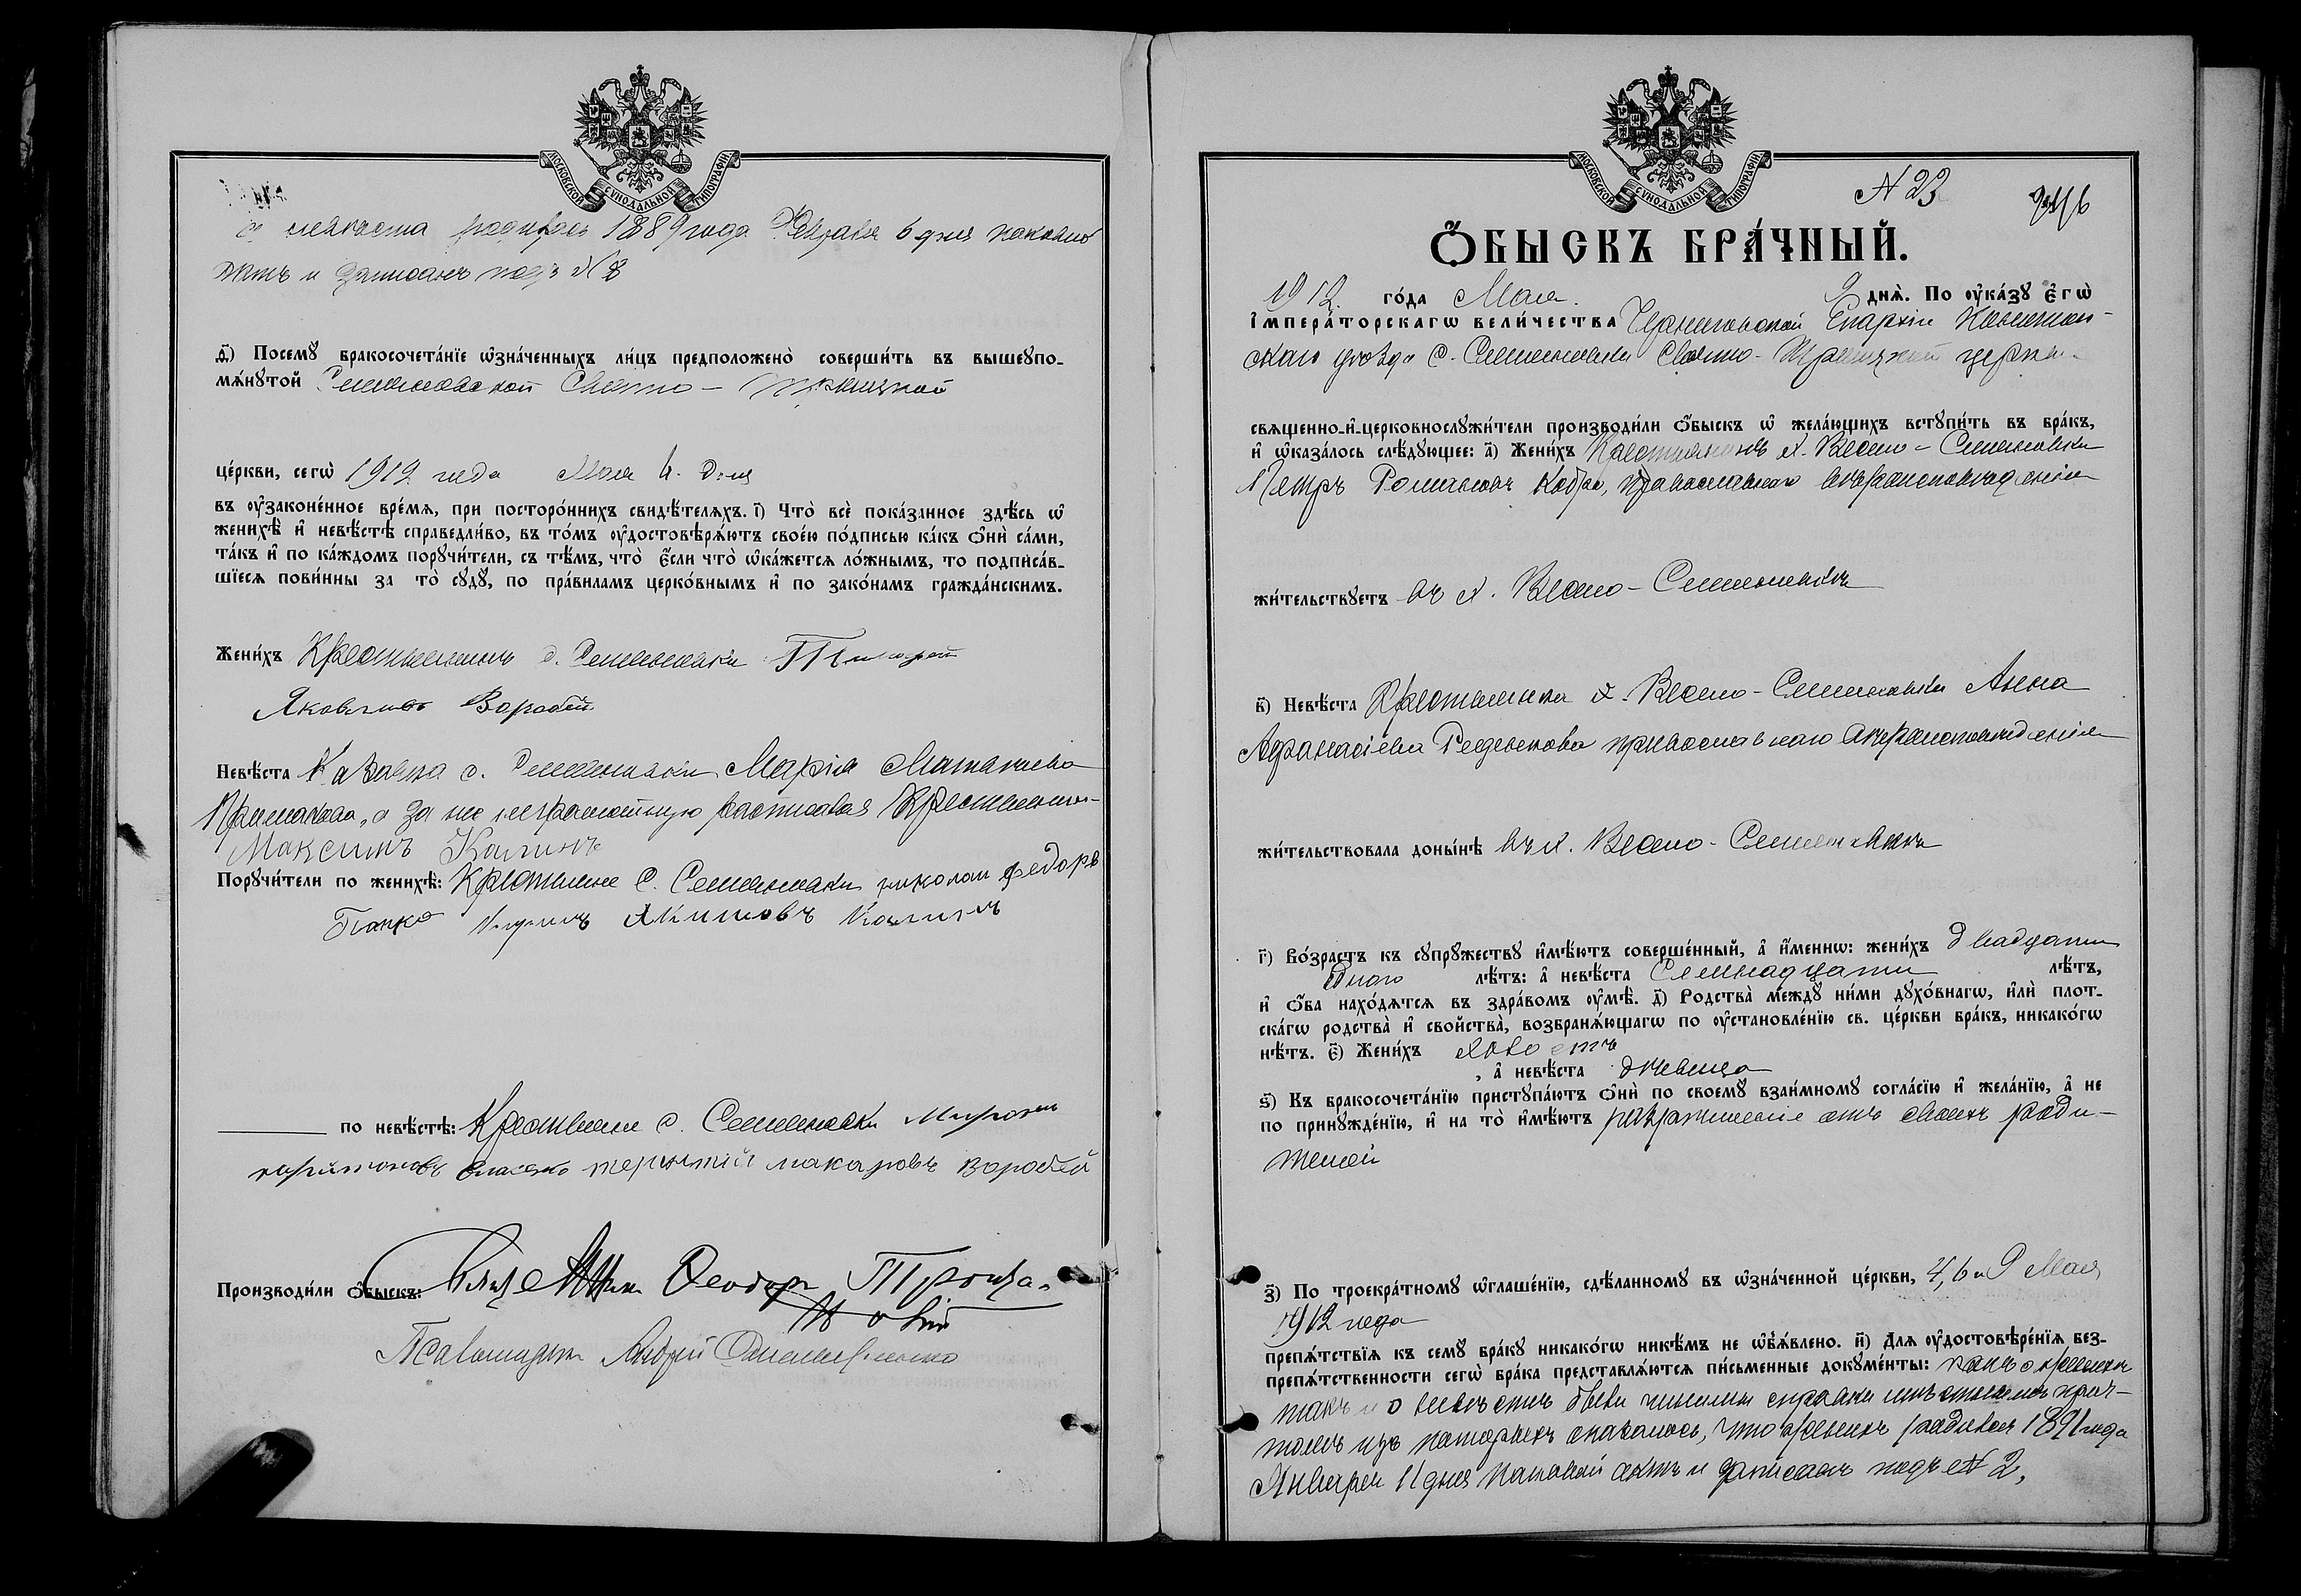 МОСКОВСКОЙ СѴНОДАЛЬНОЙ ТИПОГРАФІИ
а невѣста родилась 1889 года Февраля 6 дня каковой
актъ и записанъ подъ № 8
д҃) Посемꙋ бракосочета́нїе ѡ҆зна́ченныхъ ли́цъ предположено̀ соверши́ть въ вышеꙋпо-
мѧ́нꙋтой Семеновской Свято-Троицкой
це́ркви, сегѡ̀ 1912 года Мая 6. дня
въ ᲂу҆зако́ненное вре́мѧ, при посторо́ннихъ свидѣ́телѧхъ. і҃) Что̀ всѐ пока́занное здѣ́сь ѡ҆
женихѣ̀ и҆ невѣ́стѣ справедли́во, въ то́мъ ᲂу҆достовѣрѧ́ютъ свое́ю по́дписью ка́къ ѻ҆нѝ са́ми,
та́къ и҆ по ка́ждомъ порꙋчи́тели, съ тѣ́мъ, что̀ є҆́сли что̀ ѡ҆ка́жетсѧ ло́жнымъ, то подписа́в-
шїесѧ пови́нны за то̀ сꙋдꙋ̀, по пра́виламъ церко́внымъ и҆ по зако́намъ гражда́нскимъ.
Жени́хъ Крестьянинъ с. Семеновки
Яковлевъ Воробей
Невѣ́ста Казачка с. Семеновки Марія
а за нее неграмотную росписался Крестьянинъ
Максимъ Калинъ
Порꙋчи́тели по женихѣ̀: Крестьяне С. Семеновки николай федоровъ
Панко Акимовъ Калинъ
по невѣ́стѣ: Крестьяне с. Семеновки Миронъ
харитоновъ терентій макаровъ воробей
Производи́ли ѻ҆́быскъ: Ѳеодоръ Троиц-
кій
Псаломщикъ Андрей
№ 23
Ѻ҆́БЫСКЪ БРА́ЧНЫЙ.
МОСКОВСКОЙ СѴНОДАЛЬНОЙ ТИПОГРАФІИ
1912. го́да Мая. 9 днѧ̀. По ᲂу҆ка́зꙋ є҆гѡ̀
і҆мпера́торскагѡ вели́чества Черниговской Епархіи
скаго уѣзда с. Семеновки Свято-Троицкой церкви
свѧщенно-и҆-церковнослꙋжи́тели производи́ли ѻ҆́быскъ ѡ҆ жела́ющихъ встꙋпи́ть въ бра́къ,
и҆ ѡ҆каза́лось слѣ́дꙋющее: а҃) Жени́хъ Крестьянинъ х. Весело-Семеновки
Петръ Романовъ Кобро, православнаго вѣроисповѣданія
жи́тельствꙋетъ въ х. Весело-Семеновкѣ
в҃) Невѣ́ста Крестьянка х. Весело-Семеновки Анна
Афанасіева Реденкова православнаго вѣроисповѣданія
жи́тельствовала доны́нѣ въ х. Весело-Семеновкѣ
г҃) Во́зрастъ къ сꙋпрꙋ́жествꙋ и҆мѣ́ютъ соверше́нный, а҆ и҆́меннѡ: жени́хъ двадцати
одного лѣ́тъ: а҆ невѣ́ста Семнадцати лѣ́тъ,
и҆ ѻ҆́ба нахо́дѧтсѧ въ здра́вомъ ᲂу҆мѣ̀. д҃) Родства̀ ме́ждꙋ ни́ми дꙋхо́внагѡ, и҆лѝ плот-
ска́гѡ родства̀ и҆ сво́йства̀, возбранѧ́ющагѡ по ᲂу҆становле́нїю св. це́ркви бра́къ, никако́гѡ
нѣ́тъ. є҃) Жени́хъ холостъ
, а҆ невѣ́ста дѣвица
ѕ҃) Къ бракосочета́нїю пристꙋпа́ютъ ѻ҆нѝ по своемꙋ̀ взаи́мномꙋ согла́сїю и҆ жела́нїю, а҆ не
по принꙋжде́нїю, и҆ на то̀ и҆мѣ́ютъ разрѣшеніе отъ своихъ роди-
телей
з҃) По троекра́тномꙋ ѡ҆глаше́нїю, сдѣ́ланномꙋ въ ѡ҆зна́ченной це́ркви, 4, 6 и 9 Мая
1912 года
препѧ́тствїѧ къ семꙋ̀ бра́кꙋ никако́гѡ никѣ́мъ не ѡ҆б̾ѧ́влено. и҃) Длѧ ᲂу҆достовѣре́нїѧ без-
препѧ́тственности сегѡ̀ бра́ка представлѧ́ютсѧ пи́сьменные докꙋме́нты: какъ о женихѣ
такъ и о невѣстѣ были
изъ которыхъ оказалось, что женихъ родился 1891 года
Января 11 дня каковой актъ и записанъ подъ № 2,